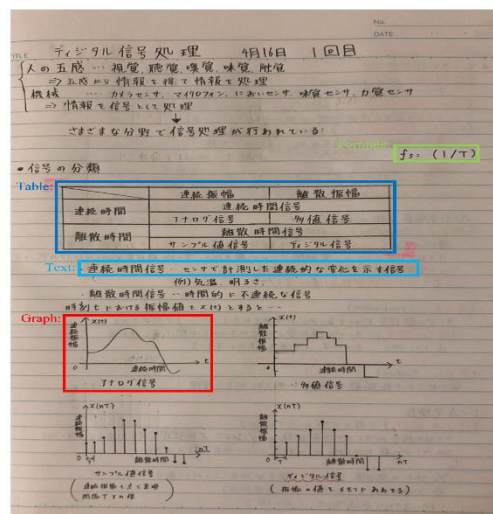 No.
DATE
TITLE ディジタル信号処理 4月16日 1回目
人の五感 … 視覚, 聴覚, 嗅覚, 味覚, 触覚
⇒ 五感から情報を得て情報を処理
機械 …… カメラセンサ, マイクロフォン, においセンサ, 味覚センサ, 力覚センサ
⇒ 情報を信号として処理
↓
さまざまな分野で信号処理が行われている!
Formula:
fs= (1/T)
•信号の分類
Table:
連続振幅 離散振幅
連続時間 連続時間信号
アナログ信号 多値信号
離散時間 離散時間信号
サンプル値信号 ディジタル信号
Text: 連続時間信号…センサで計測した連続的な変化を示す信号
例) 気温, 明るさ
離散時間信号…時間的に不連続な信号
時刻tにおける振幅値をx(t)とすると…
Graph:
x(t) 連続振幅 0 連続時間 t
アナログ信号
x(t) 離散振幅 0 連続時間 t
多値信号
x(nT) 連続振幅 0 T 離散時間 nT
サンプル値信号
x(nT) 離散振幅 0 T 離散時間 nT
ディジタル信号